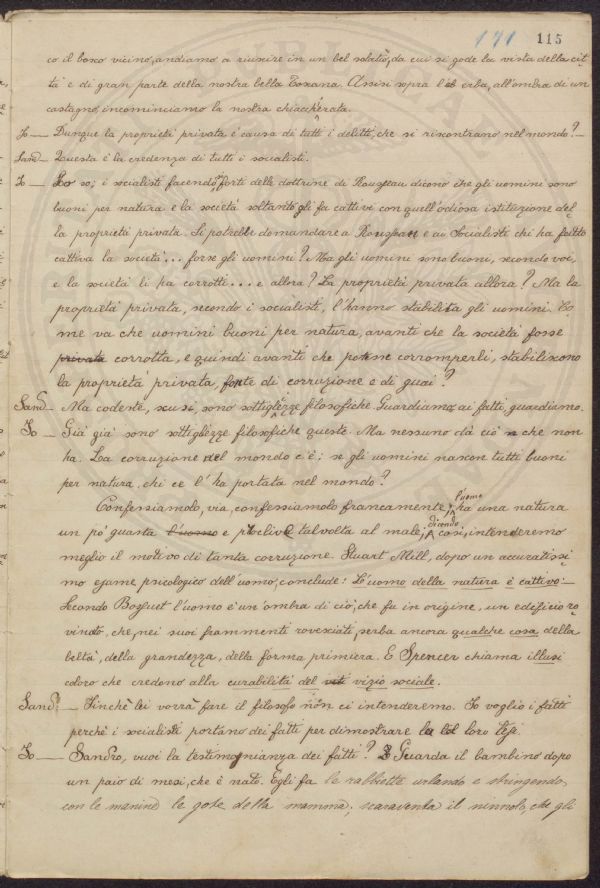 171 115
co il bosco vicino, andiamo a riuscire in un bel sodato, da cui si gode la vista della cit
tà e di gran parte della nostra bella Toscana. Assisi sopra l' erba, all'ombra di un
castagno, incominciamo la nostra chiacchierata.
Io — Dunque la proprietà privata è causa di tutti i delitti, che si riscontrano nel mondo? —
Sand — Questa è la credenza di tutti i socialisti.
Io — Lo so; i socialisti facendosi forti delle dottrine di Rousseau dicono che gli uomini sono
buoni per natura e la società soltanto gli fa cattivi con quell'odiosa istituzione del
la proprietà privata. Si potrebbe domandare a Rousseau e ai Socialisti chi ha fatto
cattiva la società... forse gli uomini? Ma gli uomini sono buoni, secondo voi,
e la società li ha corrotti... e allora? La proprietà privata allora? Ma la
proprietà privata, secondo i socialisti, l'hanno stabilita gli uomini. Co
me va che uomini buoni per natura, avanti che la società fosse
privata corrotta, e quindi avanti che potesse corromperli, stabiliscono
la proprietà privata, fonte di corruzione e di guai?
Sand — Ma codeste, scusi, sono sottigliezze filosofiche. Guardiamo ai fatti, guardiamo.
Io — Già già sono sottigliezze filosofiche queste. Ma nessuno dà ciò che non
ha. La corruzione nel mondo c'è; se gli uomini nascon tutti buoni
per natura, chi ce l'ha portata nel mondo?
Confessiamolo, via, confessiamolo francamente, l'uomo ha una natura
un po' guasta l'uomo e proclive talvolta al male; dicendo così, intenderemo
meglio il motivo di tanta corruzione. Stuart Mill, dopo un accuratissi
mo esame psicologico dell'uomo, conclude: L'uomo della natura è cattivo. —
Secondo Bossuet l'uomo è un'ombra di ciò, che fu in origine, un edificio ro
vinato, che, nei suoi frammenti rovesciati, serba ancora qualche cosa della
beltà, della grandezza, della forma primiera. E Spencer chiama illusi
coloro che credono alla curabilità del vizio sociale.
Sand — Finchè lei vorrà fare il filosofo non ci intenderemo. Io voglio i fatti
perchè i socialisti portano dei fatti per dimostrare le loro tesi.
Io — Sandro, vuoi la testimonianza dei fatti? Guarda il bambino dopo
un paio di mesi, che è nato. Egli fa le rabbiette urlando e stringendo,
con le manine le gote della mamma; scaraventa il ninnolo, che gli